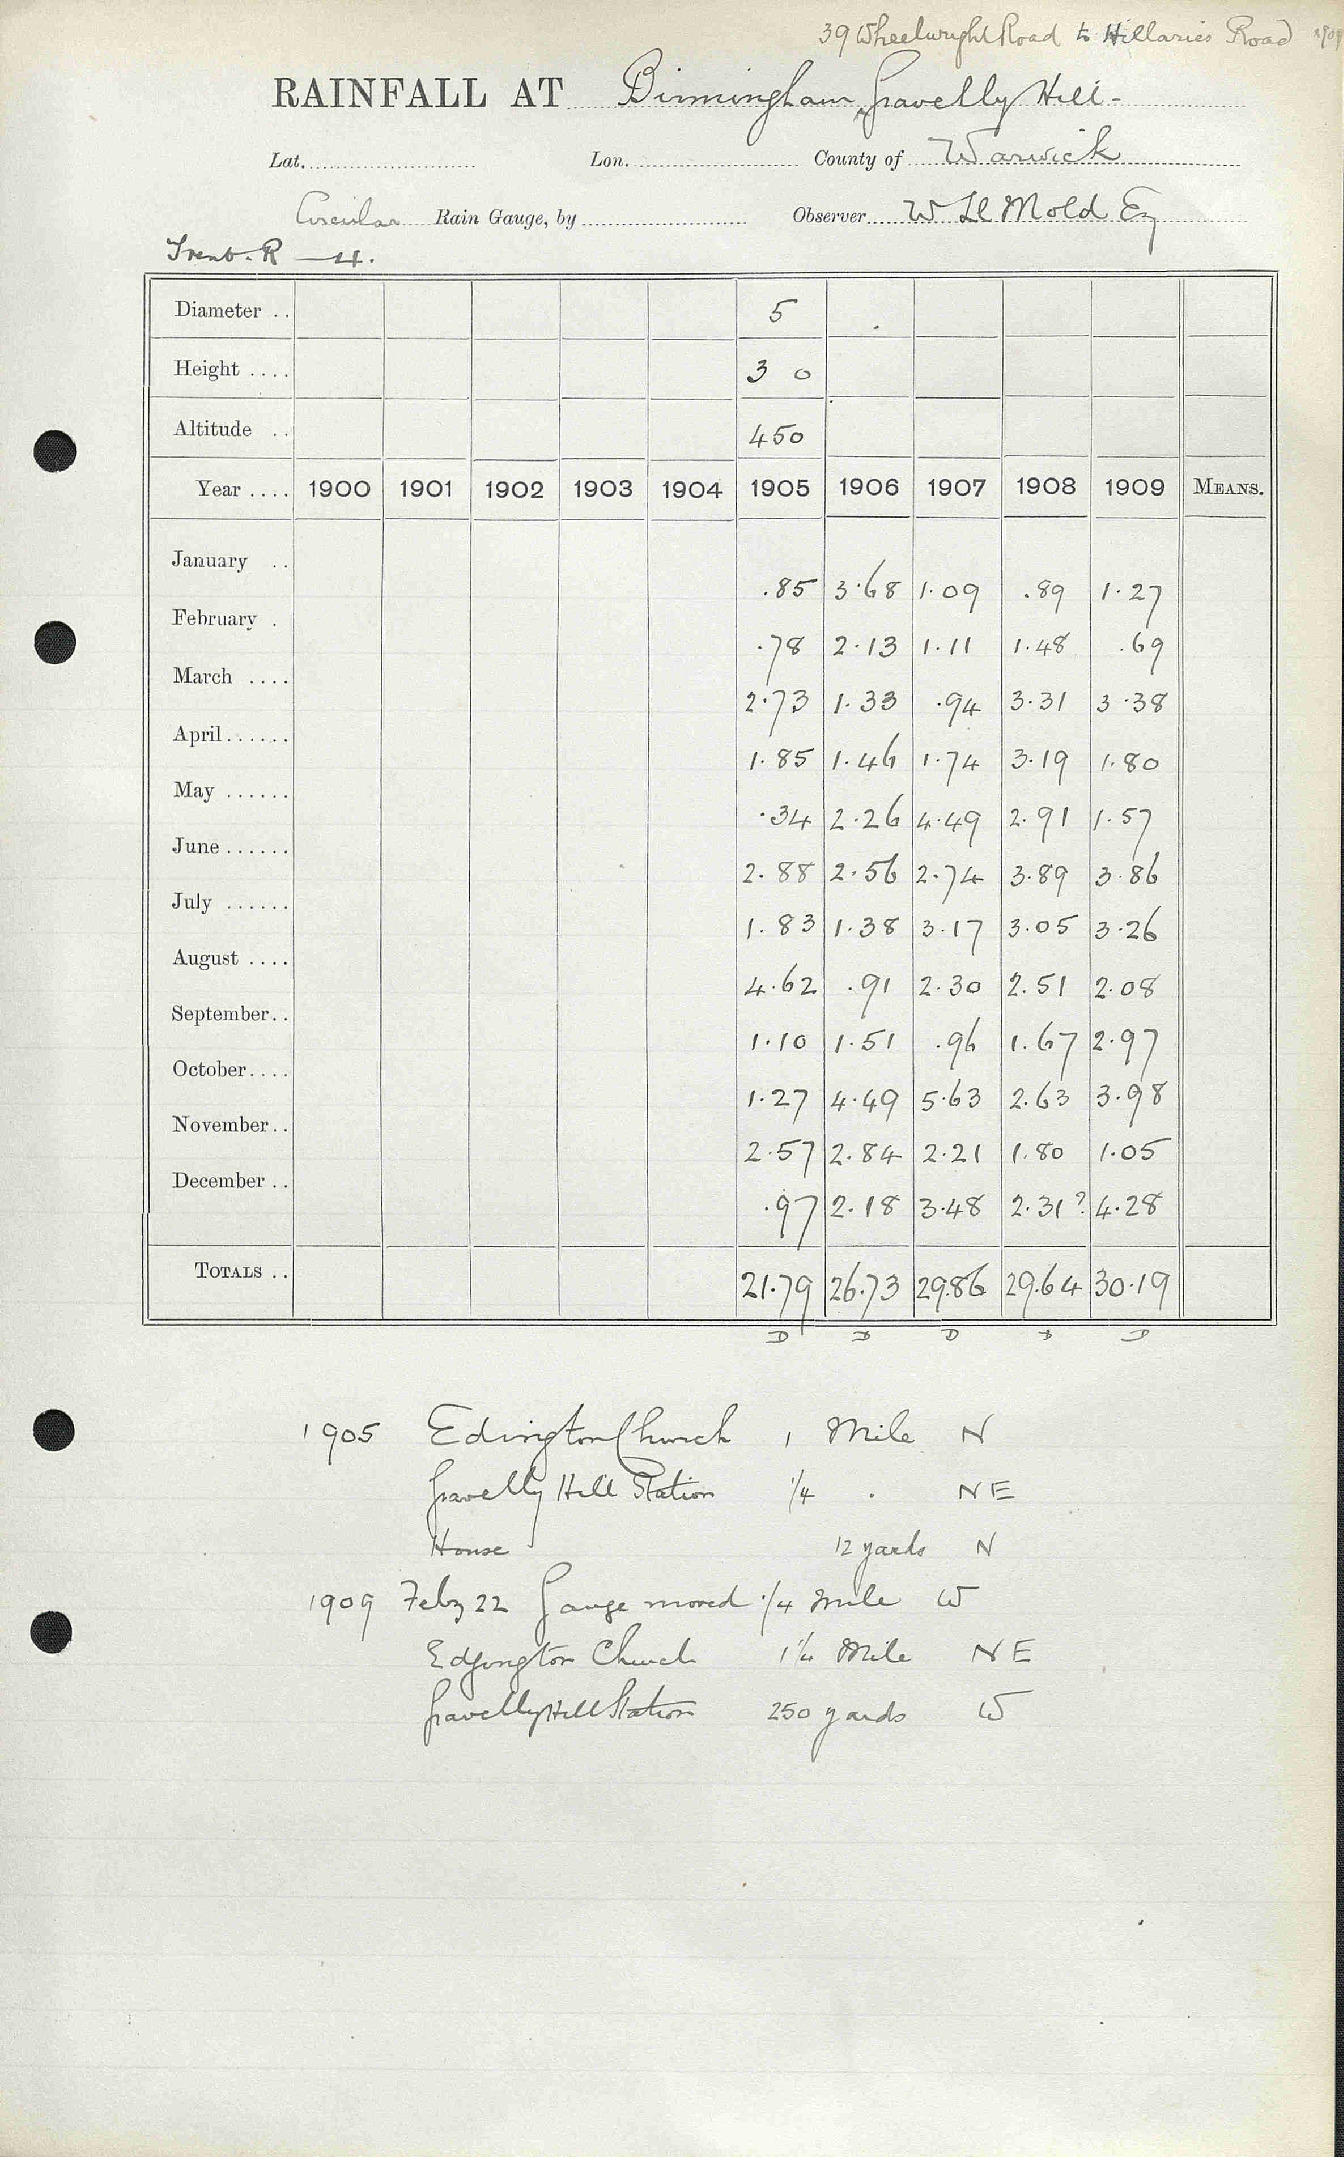 39 Wheelwright Road to Hillaries Road 1909
RAINFALL AT Birmingham, Gravelly Hill -
Lat. Lon. County of Warwick
Circular Rain Gauge, by Observer W Ll Mold Esq
Trent. R — 4.
Diameter .. 5
Height .... 3 0
Altitude .. 450
Year .... 1900 1901 1902 1903 1904 1905 1906 1907 1908 1909 MEANS.
January .. .85 3.68 1.09 .89 1.27
February . .78 2.13 1.11 1.48 .69
March .... 2.73 1.33 .94 3.31 3.38
April...... 1.85 1.46 1.74 3.19 1.80
May ...... .34 2.26 4.49 2.91 1.57
June...... 2.88 2.56 2.74 3.89 3.86
July ...... 1.83 1.38 3.17 3.05 3.26
August .... 4.62 .91 2.30 2.51 2.08
September.. 1.10 1.51 .96 1.67 2.97
October.... 1.27 4.49 5.63 2.63 3.98
November.. 2.57 2.84 2.21 1.80 1.05
December .. .97 2.18 3.48 2.31? 4.28
TOTALS .. 21.79 26.73 29.86 29.64 30.19
D D D D D
1905 Edington Church 1 Mile N
Gravelly Hill Station 1/4 . NE
House 12 yards N
1909 Feby 22 Gauge moved 1/4 mile W
Edgington Church 1 1/4 Mile NE
Gravelly Hill Station 250 yards W